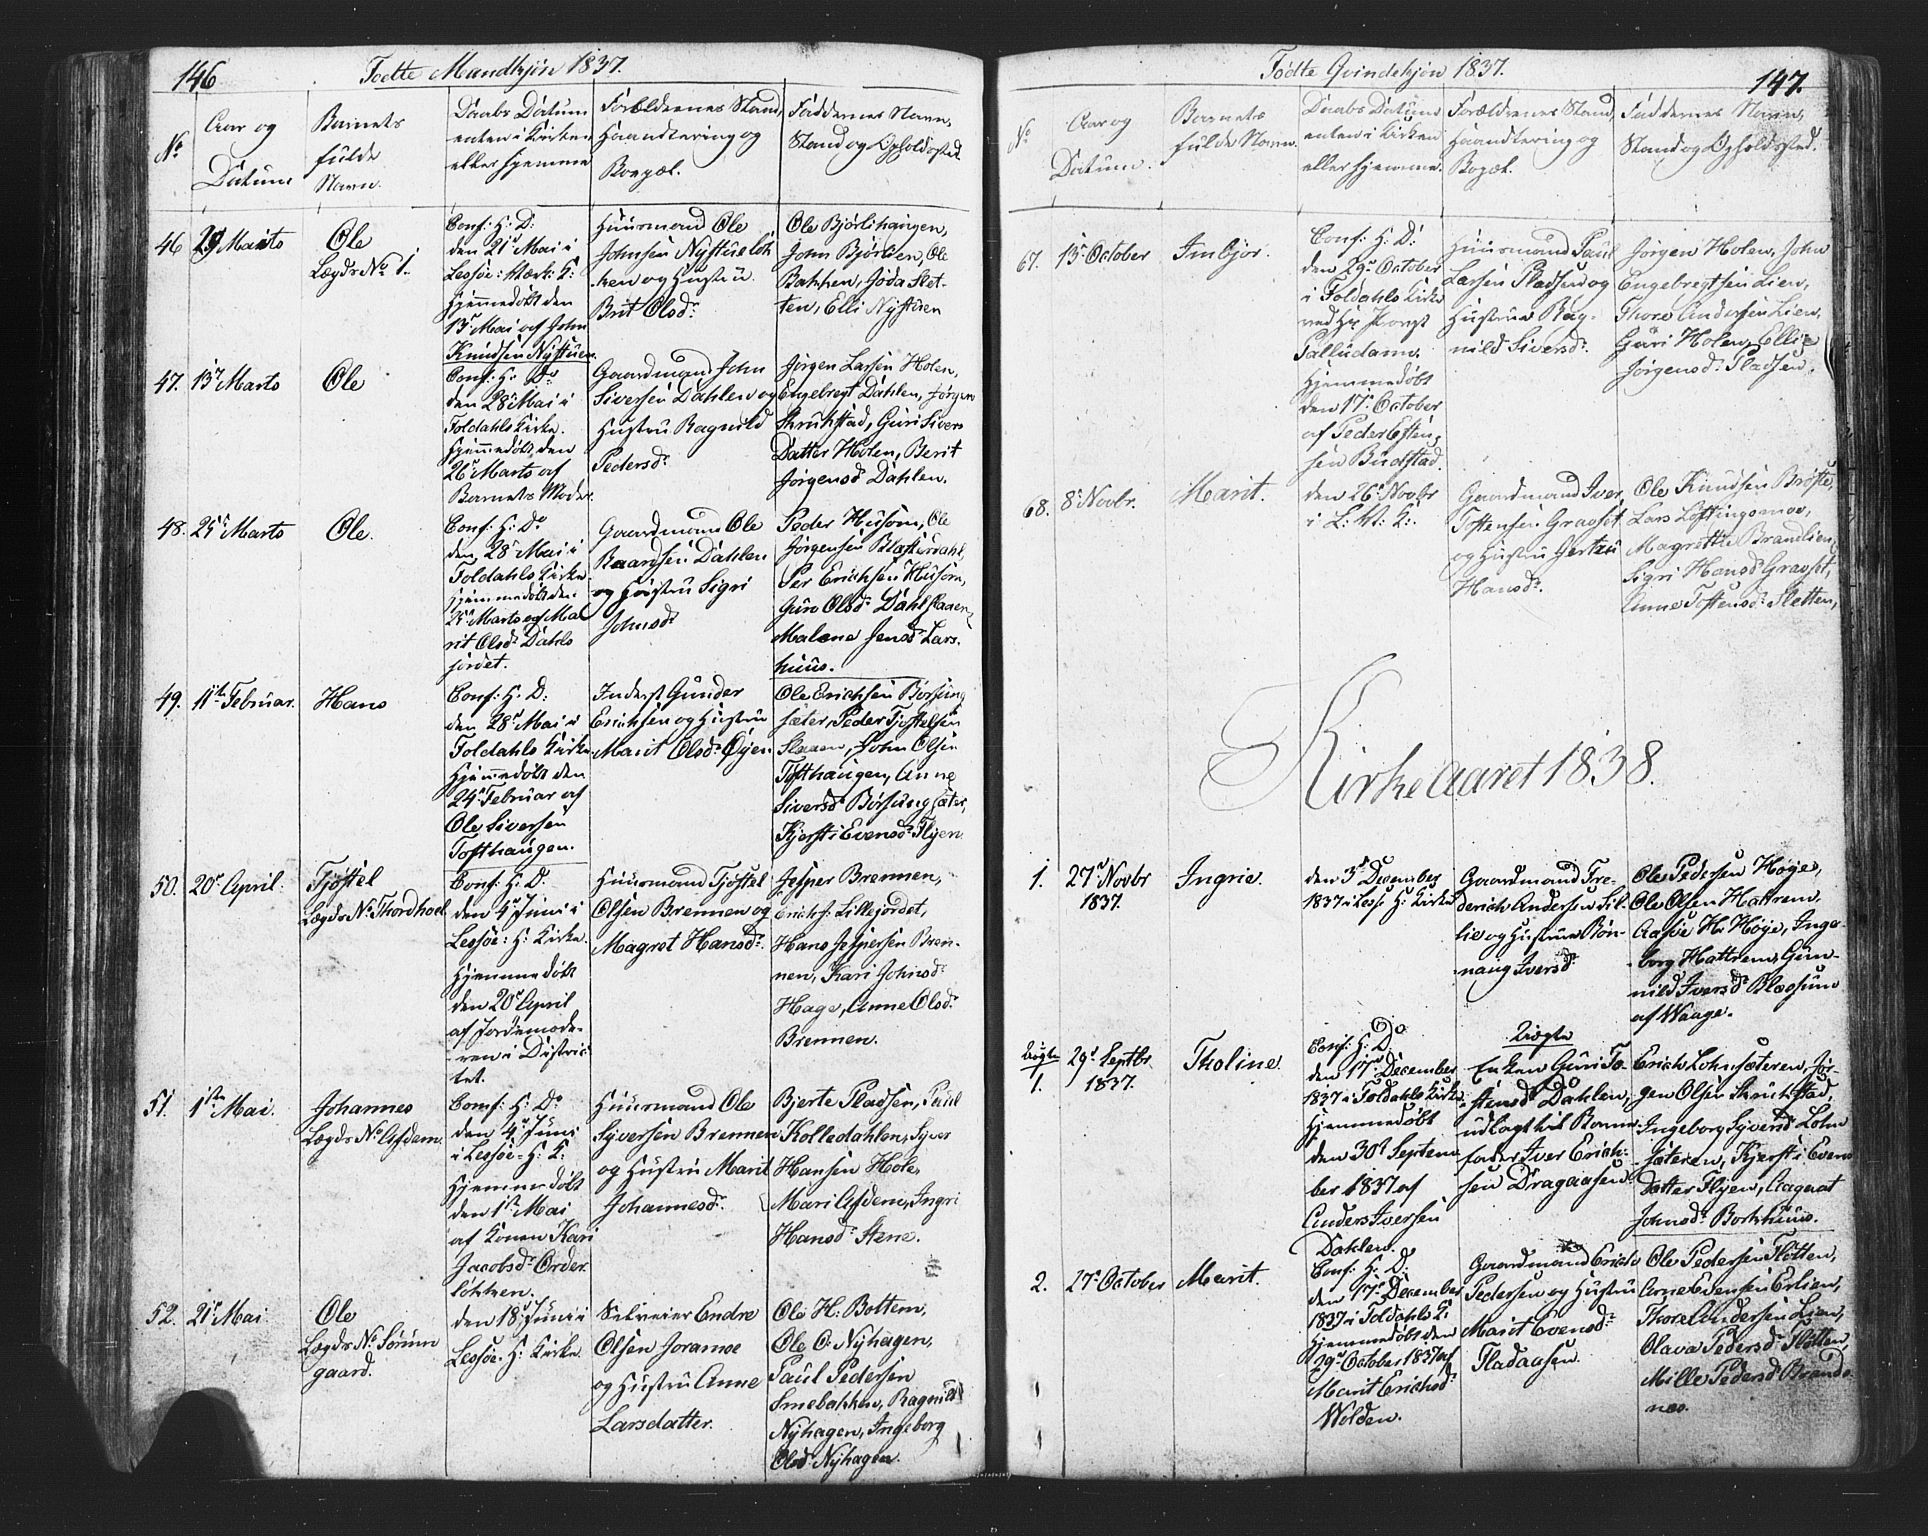 146
Fødte Mandkjøn 1837.
No
Aar og
Datum
Barnets
fulde
Navn.
Daabs Datum
enten i Kirken
eller hjemme
Forældrenes Stand,
Haandtering og
Bopæl.
Faddernes Navn,
Stand og Opholdssted.
46
Marts
Ole
Lægds No 1.
Conf: H: D:
den 21de Mai i
Lessøe: Værk: K:
Hjemmedøbt den
13de Mai af John
Knudsen Nystuen.
Huusmand Ole
Johnsen Nystueløk-
ken og Hustru
Brit Olsdr
Ole Bjørlihaugen,
John Bjørlien, Ole
Bakken, Joda Slet-
ten, Elli Nystuen
47.
13de Marts
Ole
Conf: H: Do
den 28de Mai i
Foldahls Kirke.
Hjemmedøbt den
26de Marts af
Barnets Moder.
Gaardmand John
Siversen Dahlen og
Hustru Ragnild
Pedersdr
Jørgen Larsen Holen,
Engebregt Dahlen, Jørgen
Skrukstad, Guri Sivers
Datter Holen, Berit
Jørgensd Dahlen.
48.
25de Marts
Ole.
Conf: H: Do
den 28de Mai i
Foldahls Kirke
Hjemmedøbt den
25de Marts af Ma-
rit Olsdr Dahls
jordet.
Gaardmand Ole
Baardsen Dahlen
og Hustru Sigri
Johnsdr
Peder Husom, Ole
Jørgensen Blæsterdahl,
Per Erichsen Husom,
Guro Olsdr Dahlslaaen,
Malene Jensdr Lars-
huus.
49.
11te Februar.
Hans
Conf: H: D:
den 28de Mai i
Foldahls Kirke.
Hjemmedøbt den
24de Februar af
Ole Siversen
Tofthaugen.
Inderst Gunder
Erichsen og Hustru
Marit Olsdr Øyen
Ole Erichsen Børsung
sæter, Peder Tjøstelsen
Slaaen, John Olsen
Tofthaugen, Anne
Siversdr Børsungsæter,
Kjersti Evensdr Flyen.
50.
20de April.
Tjøstel
Lægds No Thordhoel
Conf: H: D:
den 4de Juni i
Lessøe: H: Kirke.
Hjemmedøbt
den 20de April
af Jordemode-
ren i Distric-
tet.
Huusmand Tjøstel
Olsen Brennen og
Magret Hansdr
Jesper Brennen,
Erich J. Lillejordet,
Hans Jespersen Bren-
nen, Kari Johnsdr
Hage, Anne Olsdr
Brennen.
51.
1ste Mai.
Johannes
Lægds No Asdem.
Conf: H: Do
den 4de Juni
i Lessøe: H: K:
Hjemmedøbt
den 1ste Mai
af Konen Kari
Jacobsdr Order
løkken.
Huusmand Ole
Syversen Brennen
og Hustru Marit
Johannesdr.
Bjerte Pladsen, Paul
Kolledahlen, Syver
Hansen Hole,
Mari Asdem, Ingri
Hansdr Stene.
52.
21de Mai
Ole
Lægds No Sørum
gaard.
den 18de Juni i
Lessøe: H: Kirke.
Selveier Endre
Olsen Joramoe
og Hustru Anne
Larsdatter.
Ole H: Bottem,
Ole O: Nyhagen,
Paul Pedersen
Smebakken, Ragnild
Nyhagen, Ingeborg
Olsdr Nyhagen.
Fødte Qvindekjøn 1837.
147.
No
Aar og
Datum.
Barnets
fulde Navn.
Daabs Datum
enten i Kirken
eller hjemme.
Forældrenes Stand,
Haandtering og
Bopæl.
Faddernes Navn,
Stand og Opholdssted.
67.
13de October
Imbjør.
Conf: H: D:
den 29de October
i Foldahls Kirke
ved Hr Provst
Palludann.
Hjemmedøbt
den 17de October
af Peder Esten-
sen Budstad.
Huusmand Paul
Larsen Pladsen og
Hustrue Rag-
nild Siversdr
Jørgen Holen, John
Engebregtsen Lien,
Thore Andersen Lien,
Guri Holen, Elli
Jørgensdr Pladsen.
68.
8de Novbr.
Marit.
den 26de Novbr
i L: V: K:
Gaardmand Iver
Tostensen Gravset
og Hustru Gertru
Hansdr.
Ole Knudsen Brøste,
Lars Løftingsmoe,
Magrethe Brandlien,
Sigri Hansdr Gravset,
Anne Tostensdr Sletten,
Kirkeaaret 1838.
1.
27de Novbr
1837.
Ingrie.
den 3de December
1837 i Lesje H: Kirke
Gaardmand Fre-
derich Andersen Lil-
lie og Hustrue Røn-
naug Iversdr
Ole Pedersen Høye,
Ole Olsen Hattrem,
Aase H: Høye, Inge-
borg Hattrem, Gun-
nild Iversdr Blægsund
af Waage.
Uægte
1.
29de Septbr
1837.
Tholine.
Conf: H: Do
den 17de December
1837 i Foldahls Kirke
Hjemmedøbt
den 30te Septem
ber 1837 af
Anders Iversen
Dahlen.
Uægte
Enken Guri To-
stensdr Dahlen,
udlagt til Barne-
fader Iver Erich-
sen Dragaasen
Erich Lohnsæteren, Jør-
gen Olsen Skrukstad,
Ingeborg Syversdr Lohn
sæteren, Kjersti Evens
datter Flyen, Aagnat
Johnsdr Borkhuus.
2.
27de October
Marit.
Conf: H: D:
den 17de December
1837 i Foldahls K:
Hjemmedøbt den
29de October 1837 af
Marit Erichsdr
Wolden.
Gaardmand Erich
Pedersen og Hustru
Marit Evensdr
Fladaasen
Ole Pedersen Fløtten,
Arne Evensen Erlien,
Thore Andersen Lien,
Olava Pedersdr Fløtten,
Mille Pedersd Brands
nes.